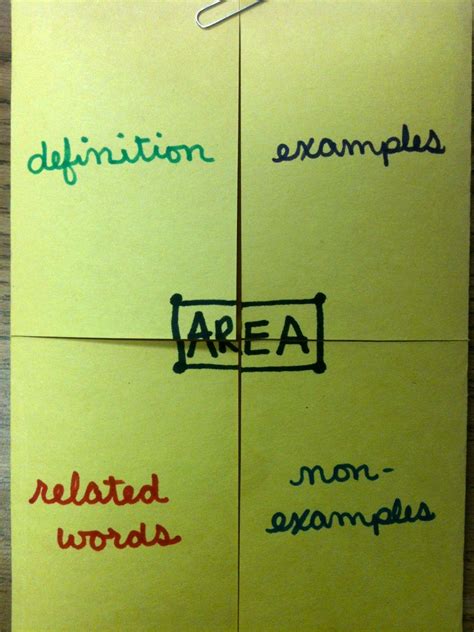 definition
examples
AREA
related
words
non-
examples